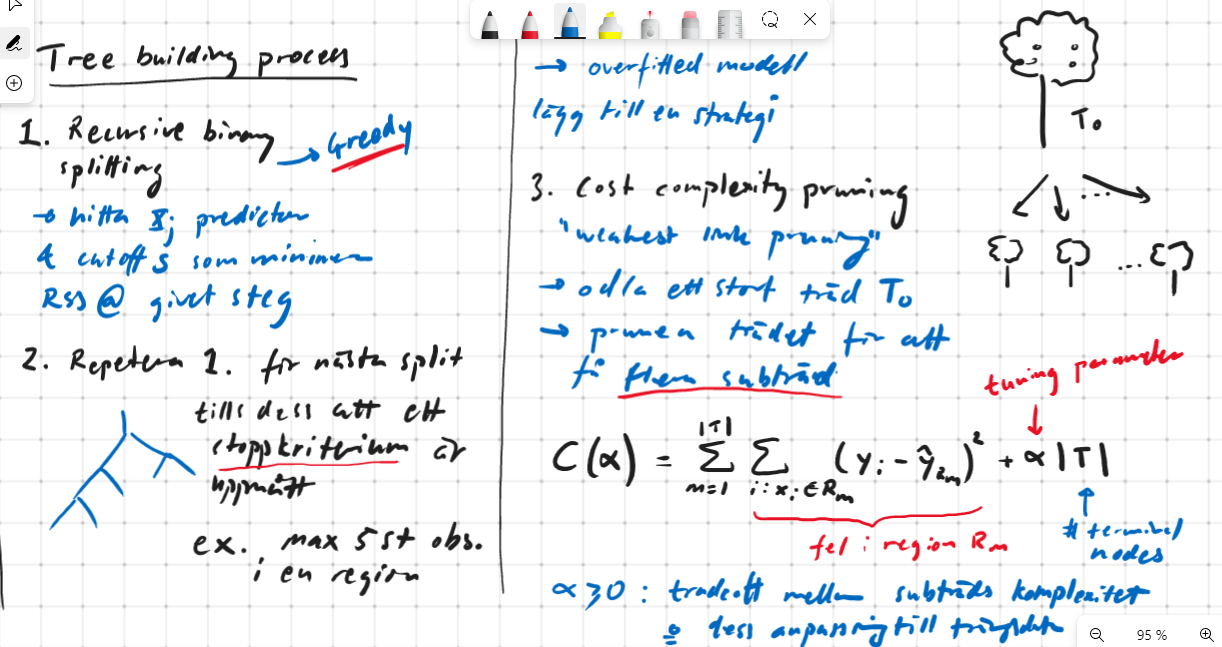 Tree building process
1. Recursive binary
splitting
→ Greedy
→ hitta Xj predictor
& cutoff s som minimerar
RSS @ givet steg
2. Repetera 1. för nästa split
tills dess att ett
stoppkriterium är
uppmätt
ex. max 5 st obs.
i en region
→ overfitted modell
lägg till en strategi
3. Cost complexity pruning
"weakest link pruning"
→ odla ett stort träd T₀
→ prunea trädet för att
få flera subträd
T₀
...
...
tuning parameter
C(α) = Σ_{m=1}^{|T|} Σ_{i: x_i ∈ R_m} (y_i - ŷ_{R_m})² + α|T|
fel i region Rm
# terminal
nodes
α ≥ 0 : tradeoff mellan subträds komplexitet
& dess anpassning till träningsdata
95 %